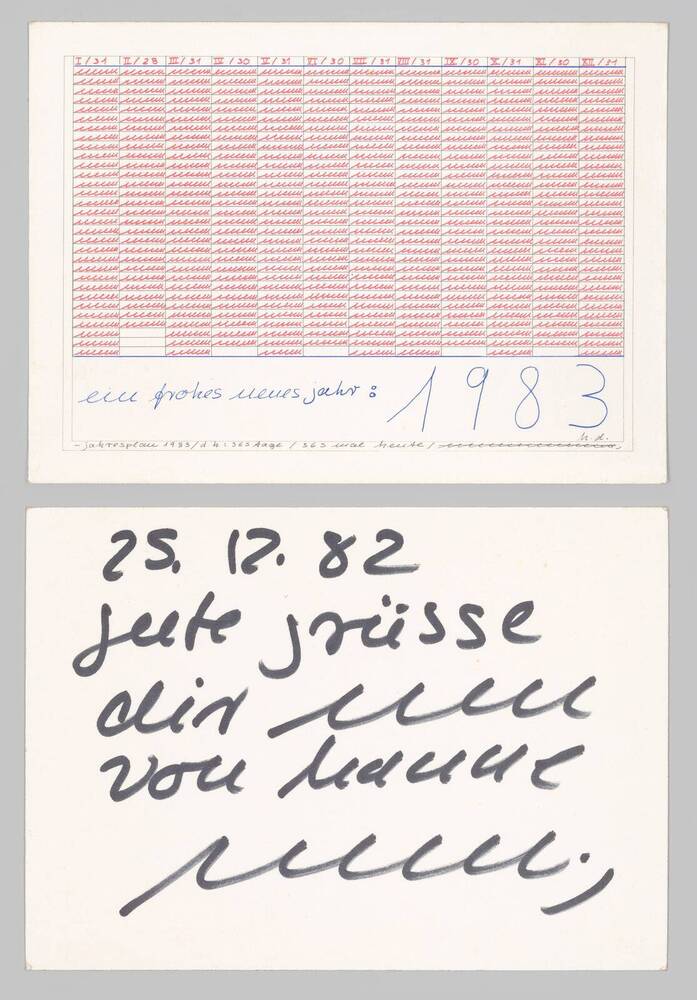 I/31 II/28 III/31 IV/30 V/31 VI/30 VII/31 VIII/31 IX/30 X/31 XI/30 XII/31
ein frohes neues jahr: 1983
h.d.
- jahresplan 1983/d h: 365 tage / 365 mal heute /
25. 12. 82
gute grüsse
dir
von hanne